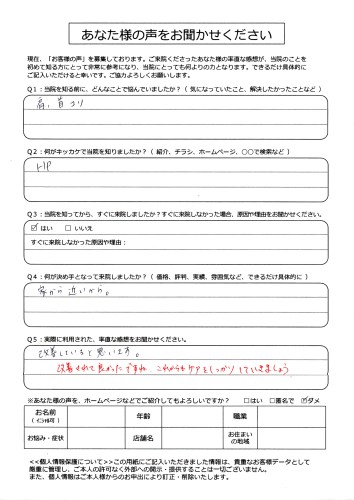 あなた様の声をお聞かせください
現在、「お客様の声」を募集しております。ご来院くださったあなた様の率直な感想が、当院のことを
初めて知る方にとって非常に参考になり、当院にとっても何よりの力となります。できるだけ具体的に
ご記入いただけると幸いです。ご協力よろしくお願いします。
Q1：当院を知る前に、どんなことで悩んでいましたか？（ 気になっていたこと、解決したかったことなど ）
肩、首コリ
Q2：何がキッカケで当院を知りましたか？（ 紹介、チラシ、ホームページ、○○で検索など ）
HP
Q3：当院を知ってから、すぐに来院しましたか？すぐに来院しなかった場合、原因や理由をお聞かせください。
☑ はい □ いいえ
すぐに来院しなかった原因や理由：
Q4：何が決め手となって来院しましたか？（ 価格、評判、実績、雰囲気など、できるだけ具体的に ）
家から近いから。
Q5：実際に利用された、率直な感想をお聞かせください。
改善していると思います。
改善されて良かったですね。これからもケアをしっかりしていきましょう
※あなた様の声を、ホームページなどでご紹介してもよろしいですか？ □はい □匿名で ☑ダメ
お名前 年齢 職業
（ｲﾆｼｬﾙ可）
お悩み・症状 店舗名 お住まい
の地域
<<個人情報保護について>>この用紙にご記入いただきました情報は、貴重なお客様データとして
厳重に管理し、ご本人の許可なく外部への開示・提供することは一切ございません。
また、個人情報はご本人様からのお申出により訂正・削除いたします。